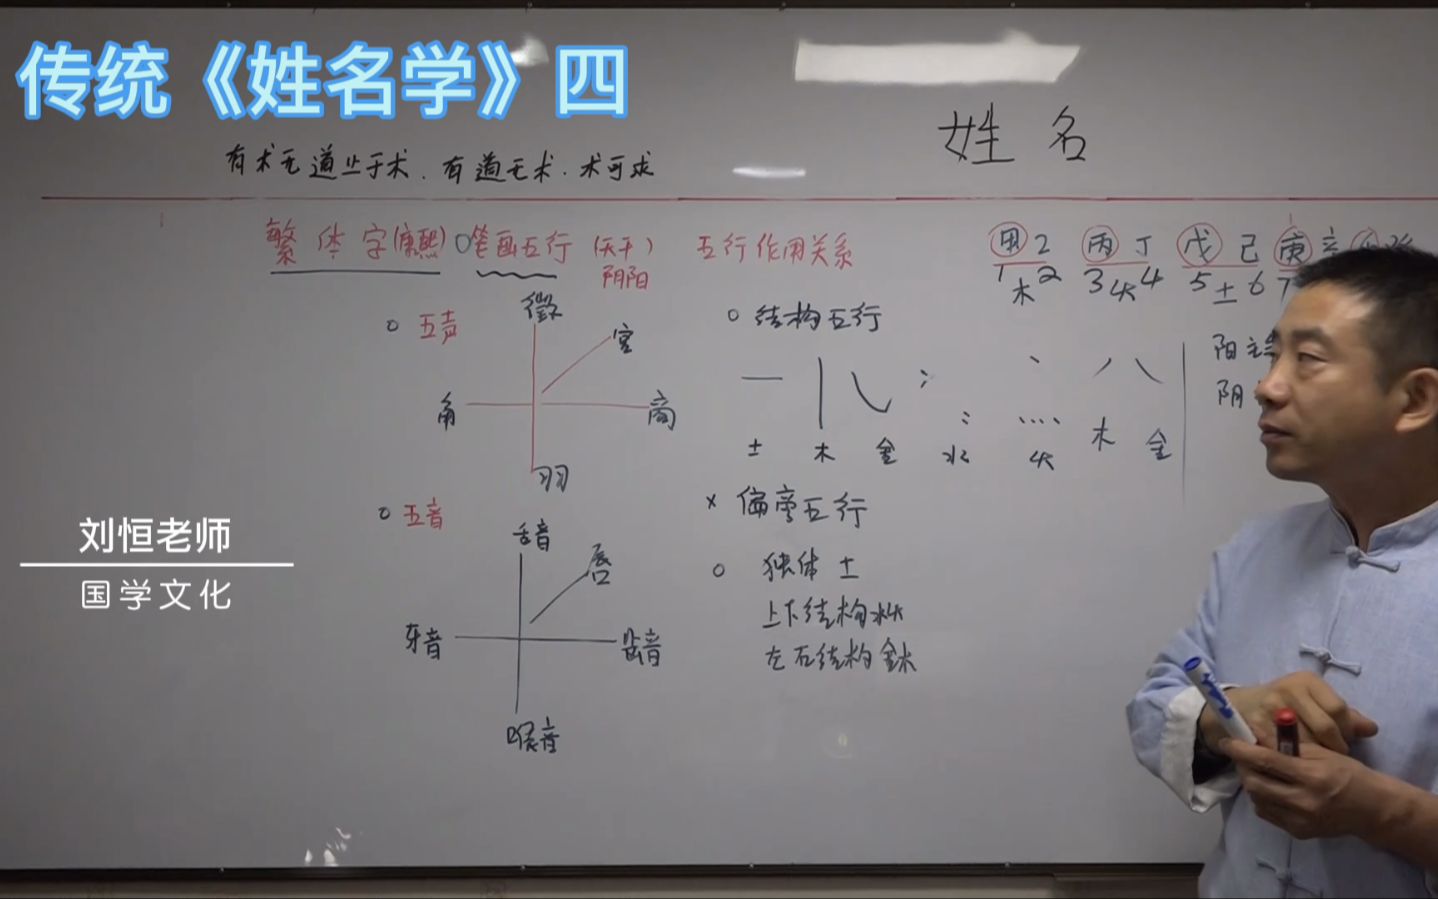 传统《姓名学》四
姓 名
有术无道止于术．有道无术．术可求
繁体字(康熙) 笔画五行 (天干) 五行作用关系
阴阳
甲乙 丙丁 戊己 庚辛
1木2 3火4 5土6 7
五声
徵
宫
角 商
羽
结构五行
阳主
阴
土 木 金 水 火 木 金
五音
舌音
唇
牙音 齿音
喉音
× 偏旁五行
独体 土
上下结构水火
左右结构金木
刘恒老师
国学文化